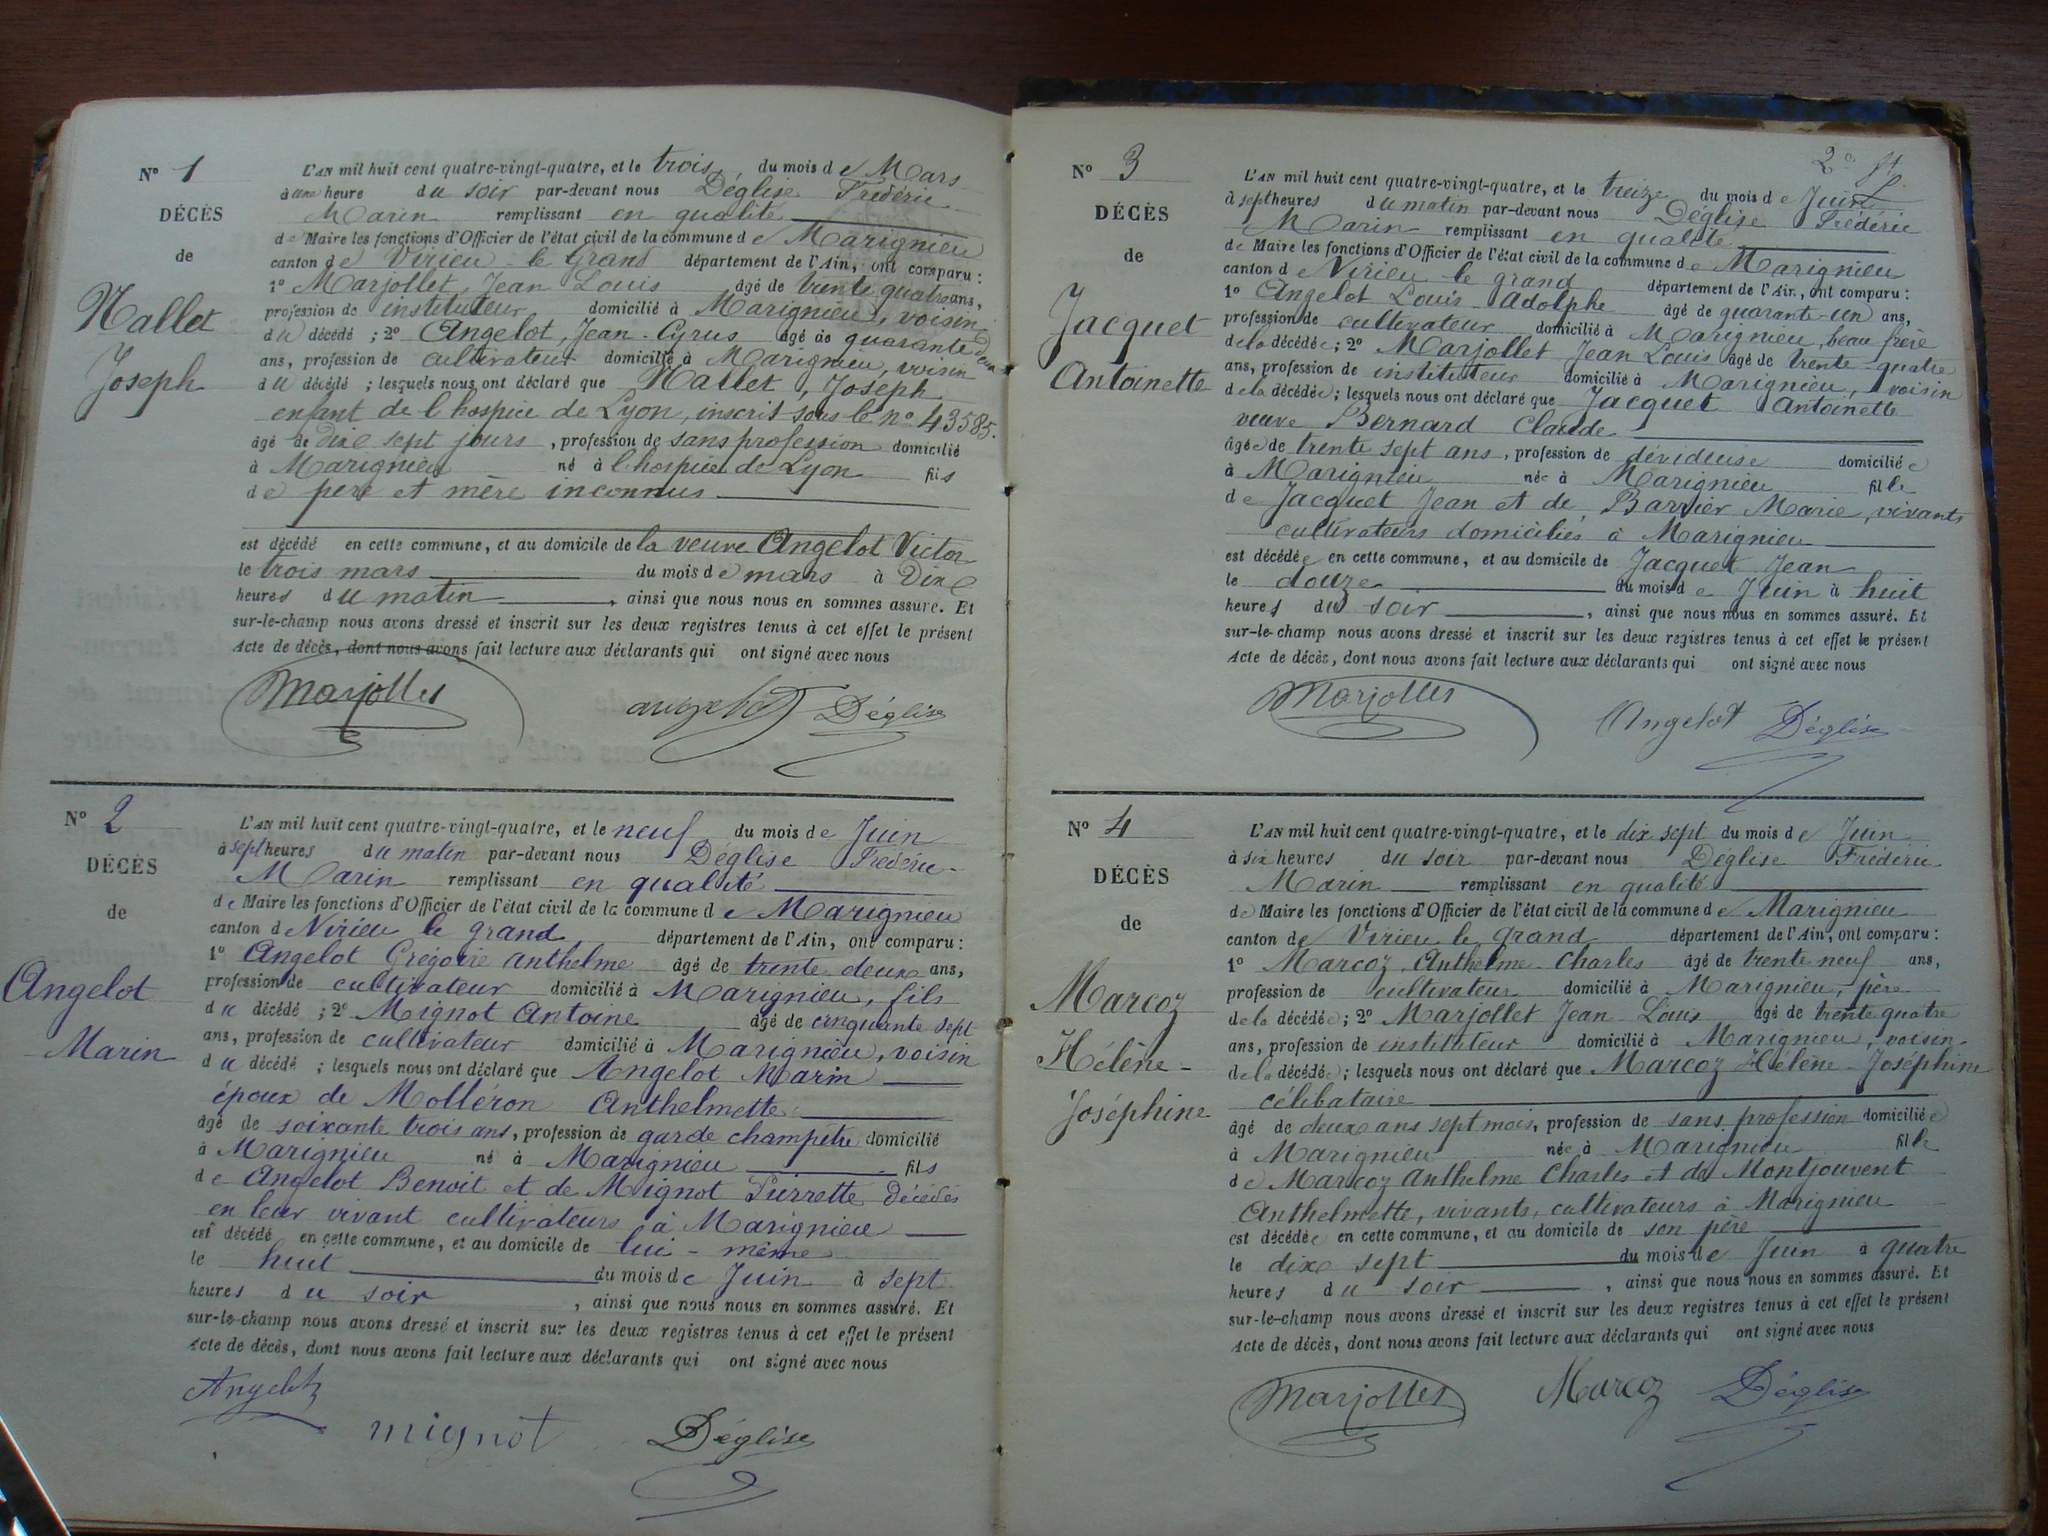 Nº 1
DÉCÈS
de
Nallet
Joseph
L'AN mil huit cent quatre-vingt-quatre, et le trois du mois de Mars
à une heure du soir par-devant nous Déglise Frédéric
Marin remplissant en qualité
de Maire les fonctions d'Officier de l'état civil de la commune de Marignieu
canton de Virieu le Grand département de l'Ain, ont comparu :
1º Marjollet, Jean Louis âgé de trente quatre ans,
profession de instituteur domicilié à Marignieu, voisin
du décédé ; 2º Angelot, Jean-Cyrus âgé de quarante deux
ans, profession de cultivateur domicilié à Marignieu, voisin
du décédé ; lesquels nous ont déclaré que Nallet, Joseph
enfant de l'hospice de Lyon, inscrit sous le nº 43585.
âgé de dix sept jours, profession de sans profession domicilié
à Marignieu né à l'hospice de Lyon fils
de père et mère inconnus
est décédé en cette commune, et au domicile de la veuve Angelot Victor
le trois mars du mois de mars à dix
heures du matin, ainsi que nous nous en sommes assuré. Et
sur-le-champ nous avons dressé et inscrit sur les deux registres tenus à cet effet le présent
Acte de décès, dont nous avons fait lecture aux déclarants qui ont signé avec nous
Marjollet angelot Déglise
Nº 2
DÉCÈS
de
Angelot
Marin
L'AN mil huit cent quatre-vingt-quatre, et le neuf du mois de Juin
à sept heures du matin par-devant nous Déglise Frédéric-
Marin remplissant en qualité
de Maire les fonctions d'Officier de l'état civil de la commune de Marignieu
canton de Virieu le grand département de l'Ain, ont comparu :
1º Angelot Grégoire Anthelme âgé de trente deux ans,
profession de cultivateur domicilié à Marignieu, fils
du décédé ; 2º Mignot Antoine âgé de cinquante sept
ans, profession de cultivateur domicilié à Marignieu, voisin
du décédé ; lesquels nous ont déclaré que Angelot Marin
époux de Molléron Anthelmette
âgé de soixante trois ans, profession de garde champêtre domicilié
à Marignieu né à Marignieu fils
de Angelot Benoit et de Mignot Pierrette décédés
en leur vivant cultivateurs à Marignieu
est décédé en cette commune, et au domicile de lui-même
le huit du mois de Juin à sept
heures du soir, ainsi que nous nous en sommes assuré. Et
sur-le-champ nous avons dressé et inscrit sur les deux registres tenus à cet effet le présent
Acte de décès, dont nous avons fait lecture aux déclarants qui ont signé avec nous
Angelot
mignot Déglise
2e
Nº 3
DÉCÈS
de
Jacquet
Antoinette
L'AN mil huit cent quatre-vingt-quatre, et le treize du mois de Juin
à sept heures du matin par-devant nous Déglise Frédéric
Marin remplissant en qualité
de Maire les fonctions d'Officier de l'état civil de la commune de Marignieu
canton de Virieu le grand département de l'Ain, ont comparu :
1º Angelot Louis-Adolphe âgé de quarante-un ans,
profession de cultivateur domicilié à Marignieu, beau frère
de la décédée ; 2º Marjollet Jean Louis âgé de trente quatre
ans, profession de instituteur domicilié à Marignieu, voisin
de la décédée ; lesquels nous ont déclaré que Jacquet Antoinette
veuve Bernard Claude
âgée de trente sept ans, profession de dévideuse domiciliée
à Marignieu née à Marignieu fille
de Jacquet Jean et de Barrier Marie, vivants
cultivateurs domiciliés à Marignieu
est décédée en cette commune, et au domicile de Jacquet Jean
le douze du mois de Juin à huit
heures du soir, ainsi que nous nous en sommes assuré. Et
sur-le-champ nous avons dressé et inscrit sur les deux registres tenus à cet effet le présent
Acte de décès, dont nous avons fait lecture aux déclarants qui ont signé avec nous
Marjollet Angelot Déglise
Nº 4
DÉCÈS
de
Marcoz
Hélène-
Joséphine
L'AN mil huit cent quatre-vingt-quatre, et le dix sept du mois de Juin
à six heures du soir par-devant nous Déglise Frédéric
Marin remplissant en qualité
de Maire les fonctions d'Officier de l'état civil de la commune de Marignieu
canton de Virieu le grand département de l'Ain, ont comparu :
1º Marcoz Anthelme-Charles âgé de trente neuf ans,
profession de cultivateur domicilié à Marignieu, père
de la décédée ; 2º Marjollet Jean-Louis âgé de trente quatre
ans, profession de instituteur domicilié à Marignieu, voisin
de la décédée ; lesquels nous ont déclaré que Marcoz Hélène-Joséphine
célibataire
âgé de deux ans sept mois, profession de sans profession domiciliée
à Marignieu née à Marignieu fille
de Marcoz Anthelme Charles et de Montjouvent
Anthelmette, vivants, cultivateurs à Marignieu
est décédée en cette commune, et au domicile de son père
le dix sept du mois de Juin à quatre
heures du soir, ainsi que nous nous en sommes assuré. Et
sur-le-champ nous avons dressé et inscrit sur les deux registres tenus à cet effet le présent
Acte de décès, dont nous avons fait lecture aux déclarants qui ont signé avec nous
Marjollet Marcoz Déglise